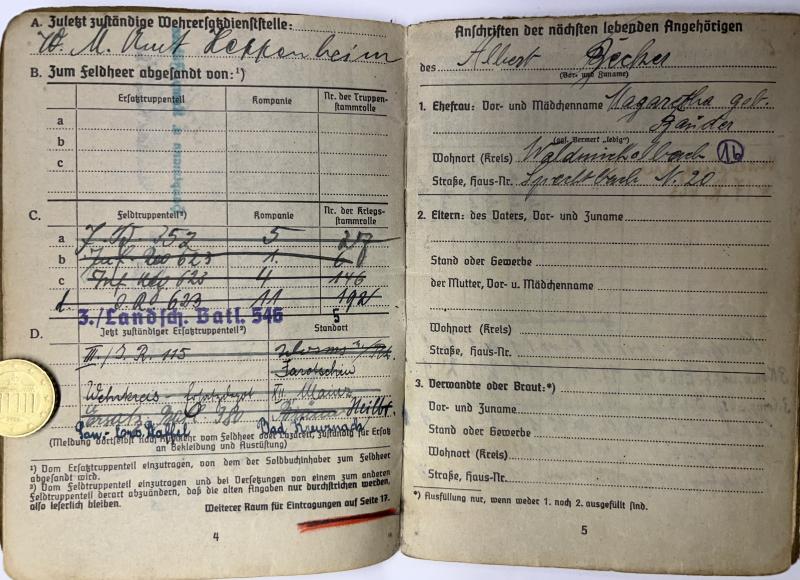 A. Zuletzt zuständige Wehrersatzdienststelle:
W. M. Amt Heppenheim
B. Zum Feldheer abgesandt von:¹)
Ersatztruppenteil Kompanie Nr. der Truppen-
stammrolle
a
b
c
C. Feldtruppenteil²) Kompanie Nr. der Kriegs-
stammrolle
a 352 5
b 623 1.
c 623 4 146
d. 623 11 192
3./Landsch. Batl. 545 5
D. Jetzt zuständiger Ersatztruppenteil²) Standort
III./J. R. 115 Worms
Jarotschin
Wehrkreis XII Mainz
380 Heilbr.
Bad Kreuznach
(Meldung dortselbst nach Rückkehr vom Feldheer oder Lazarett, zuständig für Ersatz
an Bekleidung und Ausrüstung)
¹) Vom Ersatztruppenteil einzutragen, von dem der Soldbuchinhaber zum Feldheer
abgesandt wird.
²) Vom Feldtruppenteil einzutragen und bei Versetzungen von einem zum anderen
Feldtruppenteil derart abzuändern, daß die alten Angaben nur durchstrichen werden,
also leserlich bleiben.
Weiterer Raum für Eintragungen auf Seite 17.
4
Anschriften der nächsten lebenden Angehörigen
des Albert
(Vor- und Zuname)
1. Ehefrau: Vor- und Mädchenname Magaretha geb.
(ggf. Vermerk „ledig")
Wohnort (Kreis) Waldmichelbach 1b
Straße, Haus-Nr. N. 20
2. Eltern: des Vaters, Vor- und Zuname
Stand oder Gewerbe
der Mutter, Vor- u. Mädchenname
Wohnort (Kreis)
Straße, Haus-Nr.
3. Verwandte oder Braut:*)
Vor- und Zuname
Stand oder Gewerbe
Wohnort (Kreis)
Straße, Haus-Nr.
*) Ausfüllung nur, wenn weder 1. noch 2. ausgefüllt sind.
5